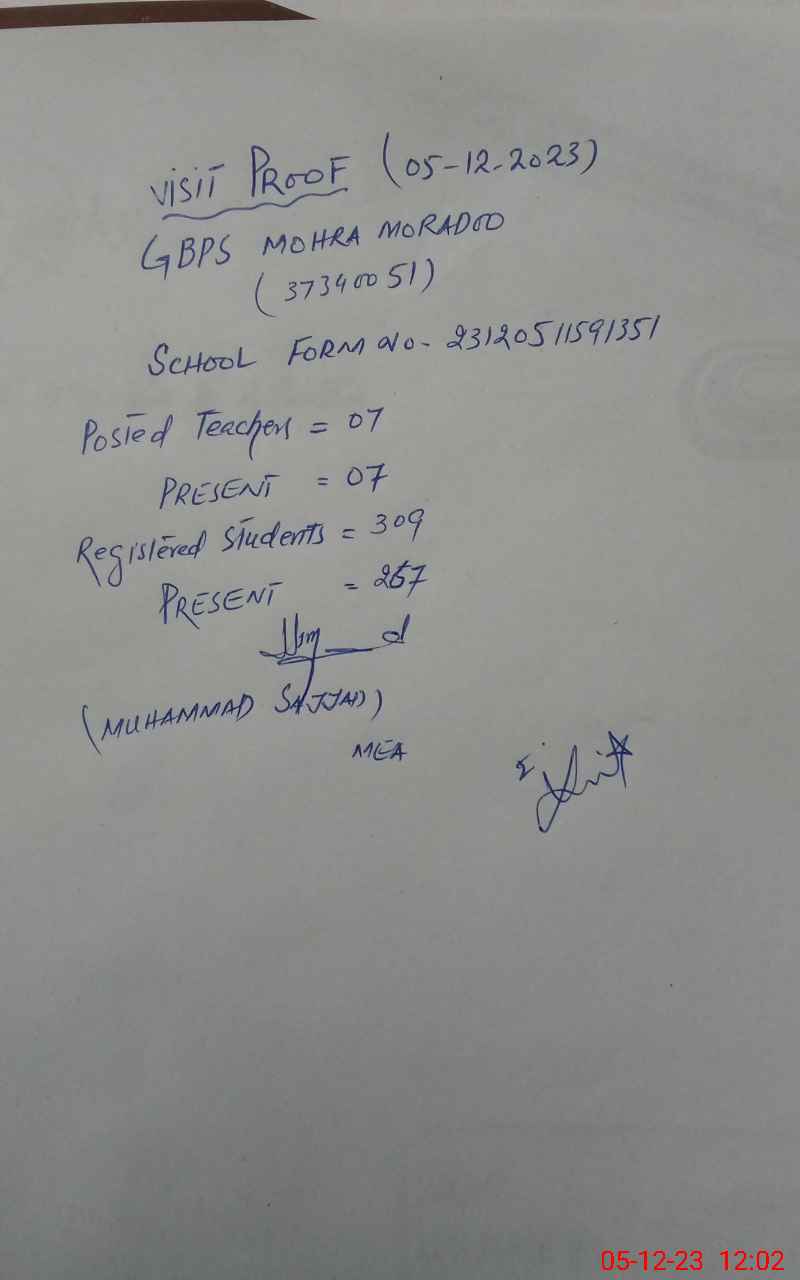 VISIT PROOF (05-12-2023)
GBPS MOHRA MORADOO
(37340051)
SCHOOL FORM NO- 23120511591351
Posted Teachers = 07
PRESENT = 07
Registered Students = 309
PRESENT = 267
(MUHAMMAD SAJJAD)
MEA
05-12-23 12:02